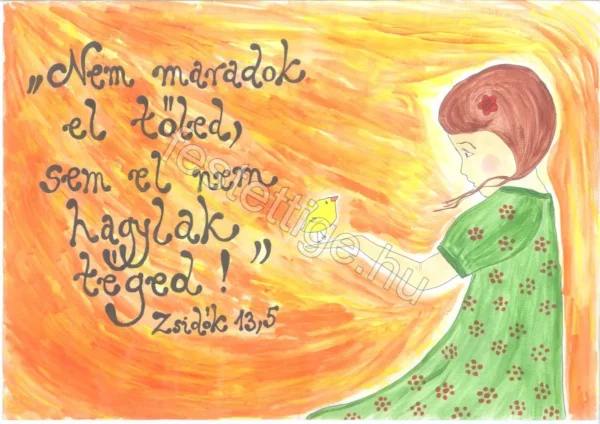 „Nem maradok
el tőled,
sem el nem
hagylak
téged!”
Zsidók 13,5
festettige.hu